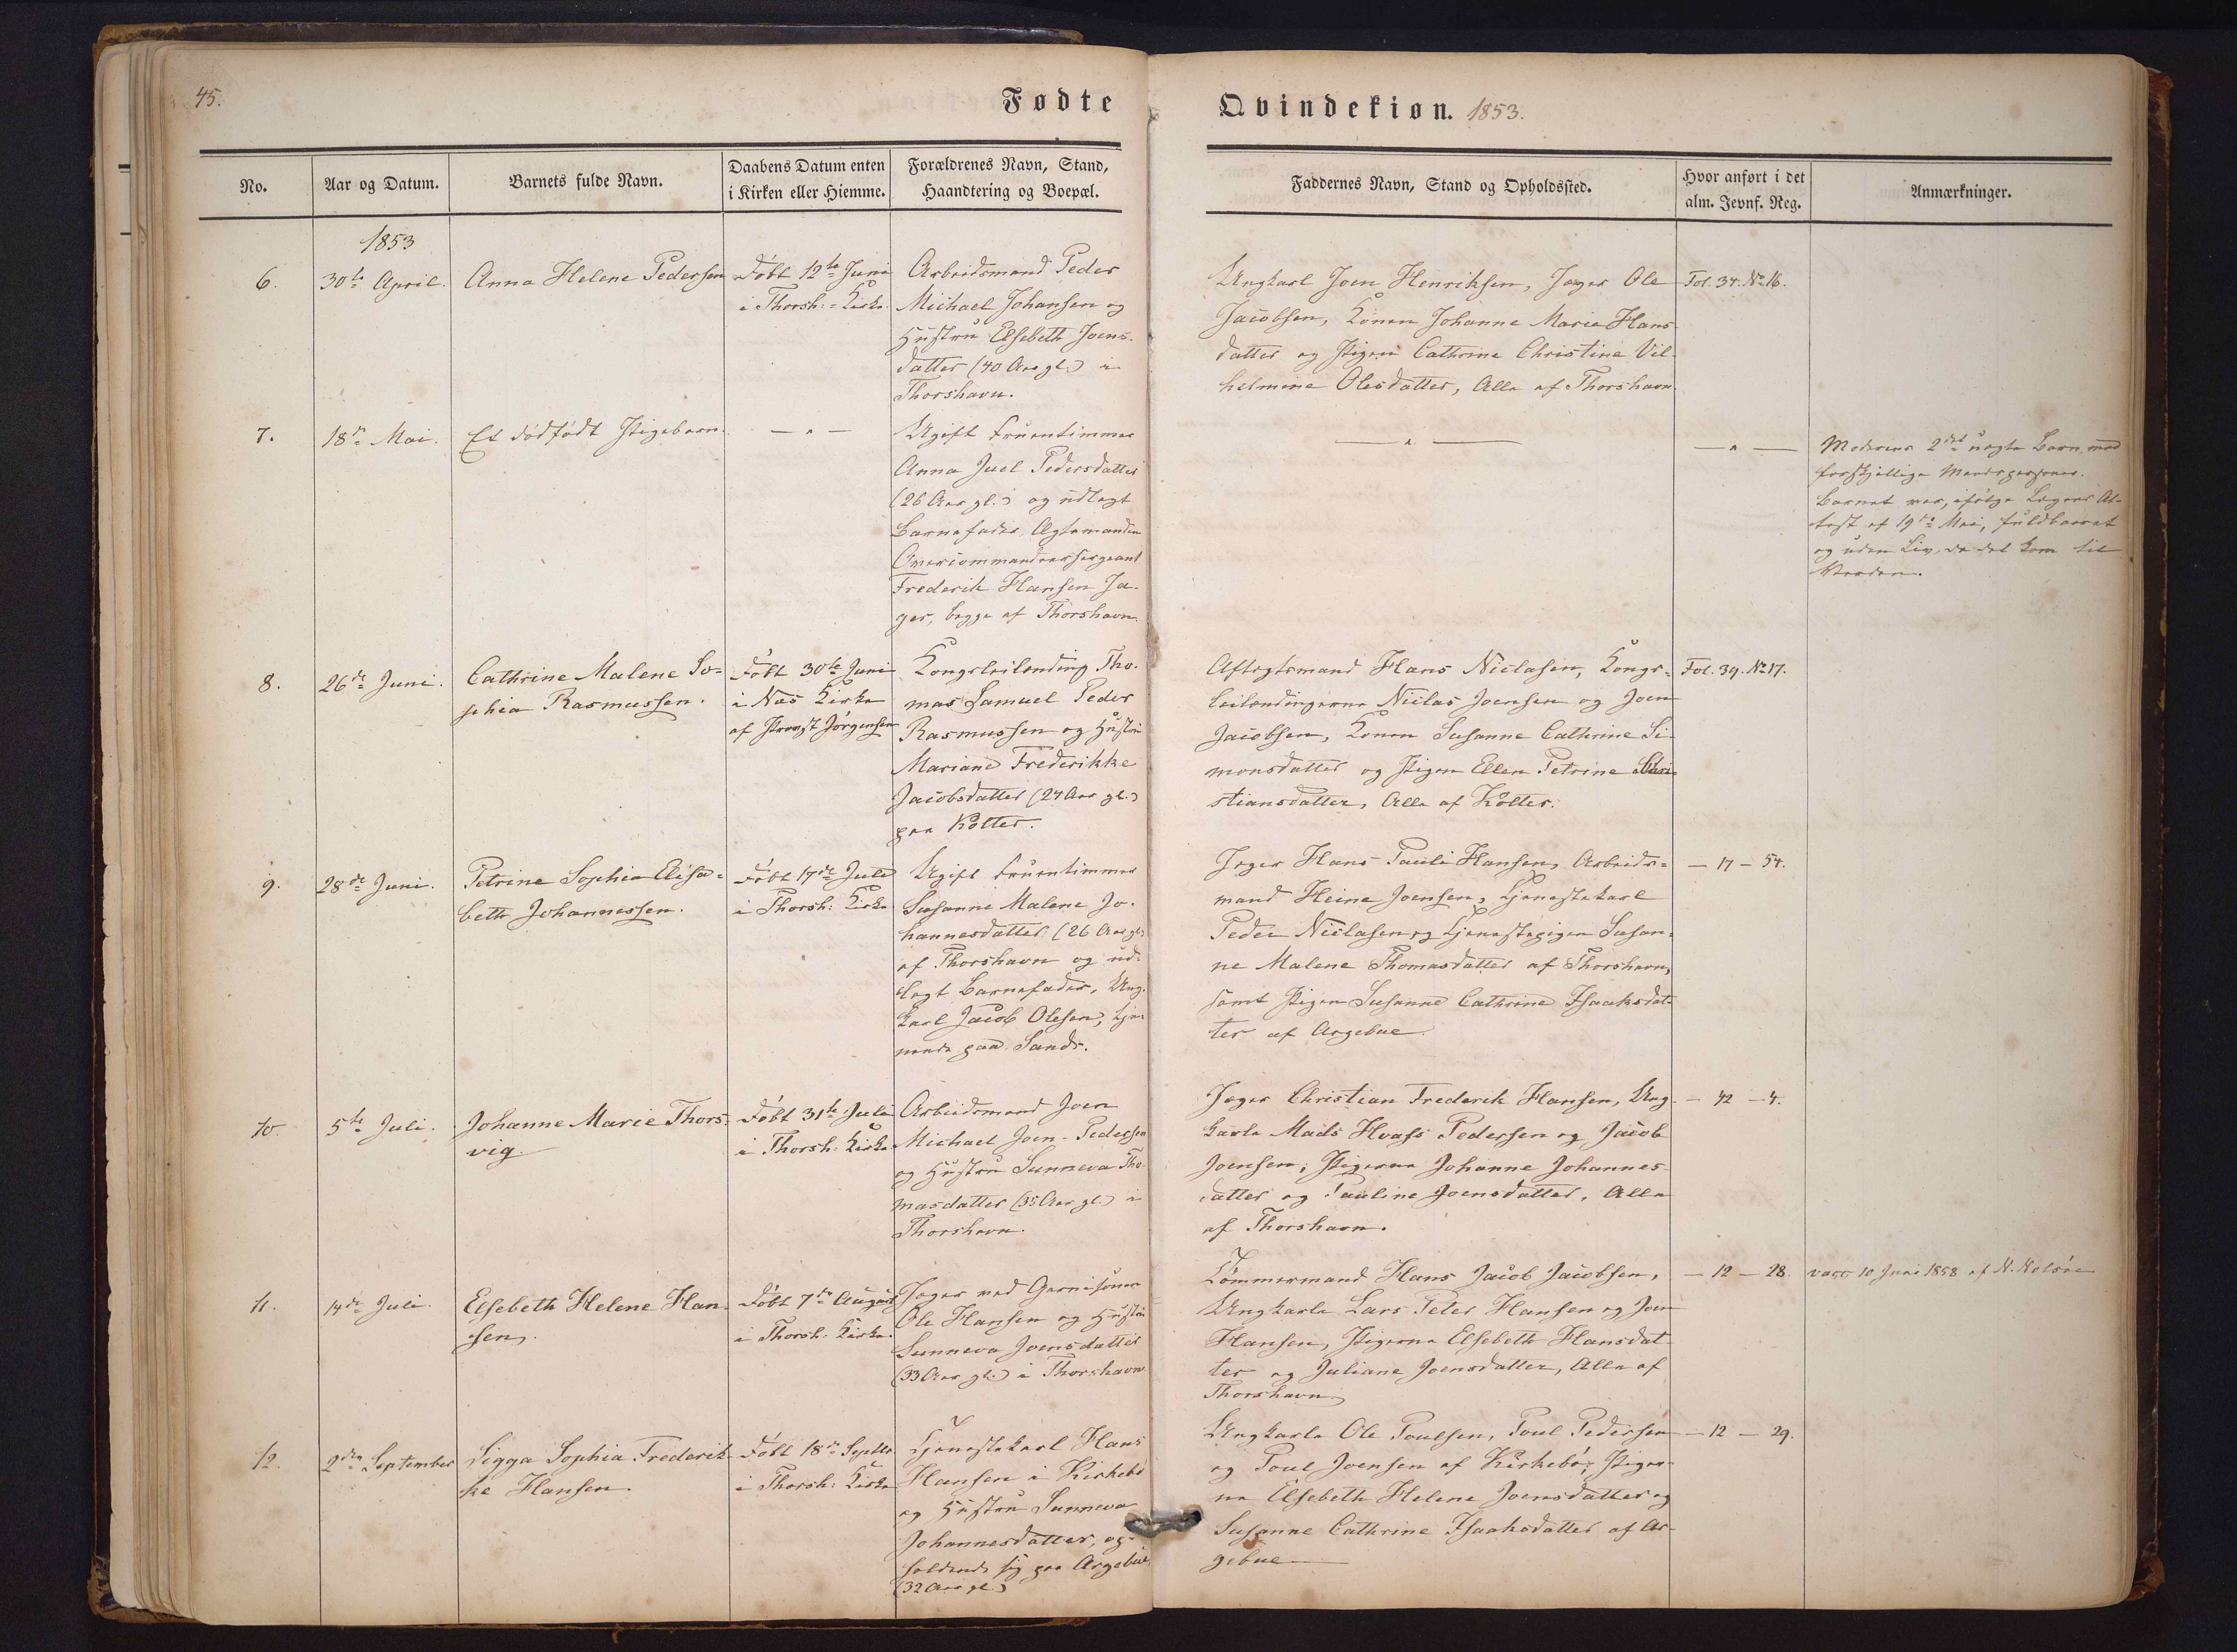 45.
Fødte
Qvindekiøn. 1853.
No.
Aar og Datum.
Barnets fulde Navn.
Daabens Datum enten
i Kirken eller Hiemme.
Forældrenes Navn, Stand,
Haandtering og Boepæl.
Faddernes Navn, Stand og Opholdssted.
Hvor anført i det
alm. Jevnf. Reg.
Anmærkninger.
1853
6.
30te April.
Anna Helene Pedersen
Døbt 12te Juni
i Thorsh: Kirke.
Arbeidsmand Peder
Michael Johansen og
Hustru Elsebeth Joens-
datter (40 Aar gl.) i
Thorshavn.
Ungkarl Joen Henriksen, Jæger Ole
Jacobsen, Konen Johanne Marie Hans-
datter og Pigen Cathrine Christine Vil-
helmine Olesdatter, Alle af Thorshavn.
Fol. 34. No 16.
7.
18de Mai.
Et dødfødt Pigebarn.
— " —
Ugift Fruentimmer
Anna Juel Pedersdatter
(26 Aar gl.) og udlagt
Barnefader, Ægtemanden
Overcommandeersergeant
Frederik Hansen Jæ-
ger, begge af Thorshavn.
— " —
— " —
Moderens 2det uægte Barn med
forskjellige Mandspersoner.
Barnet var, ifølge Lægens At-
test af 19de Mai, fuldbaaret
og uden Liv, da det kom til
Verden.
8.
26de Juni.
Cathrine Malene So-
phia Rasmussen.
Døbt 30te Juni
i Næs Kirke
af Provst Jørgensen
Kongsleilending Tho-
mas Samuel Peder
Rasmussen og Hustru
Mariane Frederikke
Jacobsdatter (24 Aar gl.)
paa Kolter.
Aftægtsmand Hans Niclasen, Kongs-
leilendingerne Niclas Joensen og Joen
Jacobsen, Konen Susanne Cathrine Si-
monsdatter og Pigen Ellen Petrine Chri-
stiansdatter, Alle af Kolter.
Fol. 39. No 17.
9.
28de Juni.
Petrine Sophia Elisa-
beth Johannessen.
Døbt 17de Juli
i Thorsh: Kirke
Ugift Fruentimmer
Susanne Malene Jo-
hannesdatter (26 Aar gl.)
af Thorshavn og ud-
lagt Barnefader, Ung-
karl Jacob Olesen, tje-
nende paa Sande.
Jæger Hans Pauli Hansen, Arbeids-
mand Heine Joensen, Tjenestekarl
Peder Niclasen og Tjenestepigen Susan-
ne Malene Thomasdatter af Thorshavn,
samt Pigen Susanne Cathrine Isaaksdat-
ter af Argebøe.
— 17 — 54.
10.
5te Juli.
Johanne Marie Thors-
vig.
Døbt 31te Juli
i Thorsh: Kirke
Arbeidsmand Joen
Michael Joen-Pedersen
og Hustru Sunneva Tho-
masdatter (35 Aar gl.) i
Thorshavn.
Jæger Christian Frederik Hansen, Ung-
karle Mads Hvass Pedersen og Jacob
Joensen; Pigerne Johanne Johannes-
datter og Pauline Joensdatter, Alle
af Thorshavn.
— 42 — 4.
11.
14de Juli.
Elsebeth Helene Han-
sen.
Døbt 7de August
i Thorsh. Kirke.
Jæger ved Garnisonen
Ole Hansen og Hustru
Sunneva Joensdatter
(33 Aar gl.) i Thorshavn
Tømmermand Hans Jacob Jacobsen,
Ungkarle Lars Peter Hansen og Joen
Hansen, Pigerne Elsebeth Hansdat-
ter og Juliane Joensdatter, Alle af
Thorshavn.
— 12 — 28.
vacc 10 Juni 1858 af N. Nolsøe
12.
2den September
Sigga Sophia Frederik-
ke Hansen.
Døbt 18de Septbr
i Thorsh: Kirke
Tjenestekarl Hans
Hansen i Kirkebø
og Hustru Sunneva
Johannesdatter, op-
holdende sig paa Argebøe
(32 Aar gl.)
Ungkarle Ole Poulsen, Poul Pedersen
og Poul Joensen af Kirkebø; Piger-
ne Elsebeth Helene Joensdatter og
Susanne Cathrine Isaaksdatter af Ar-
gebøe
— 12 — 29.